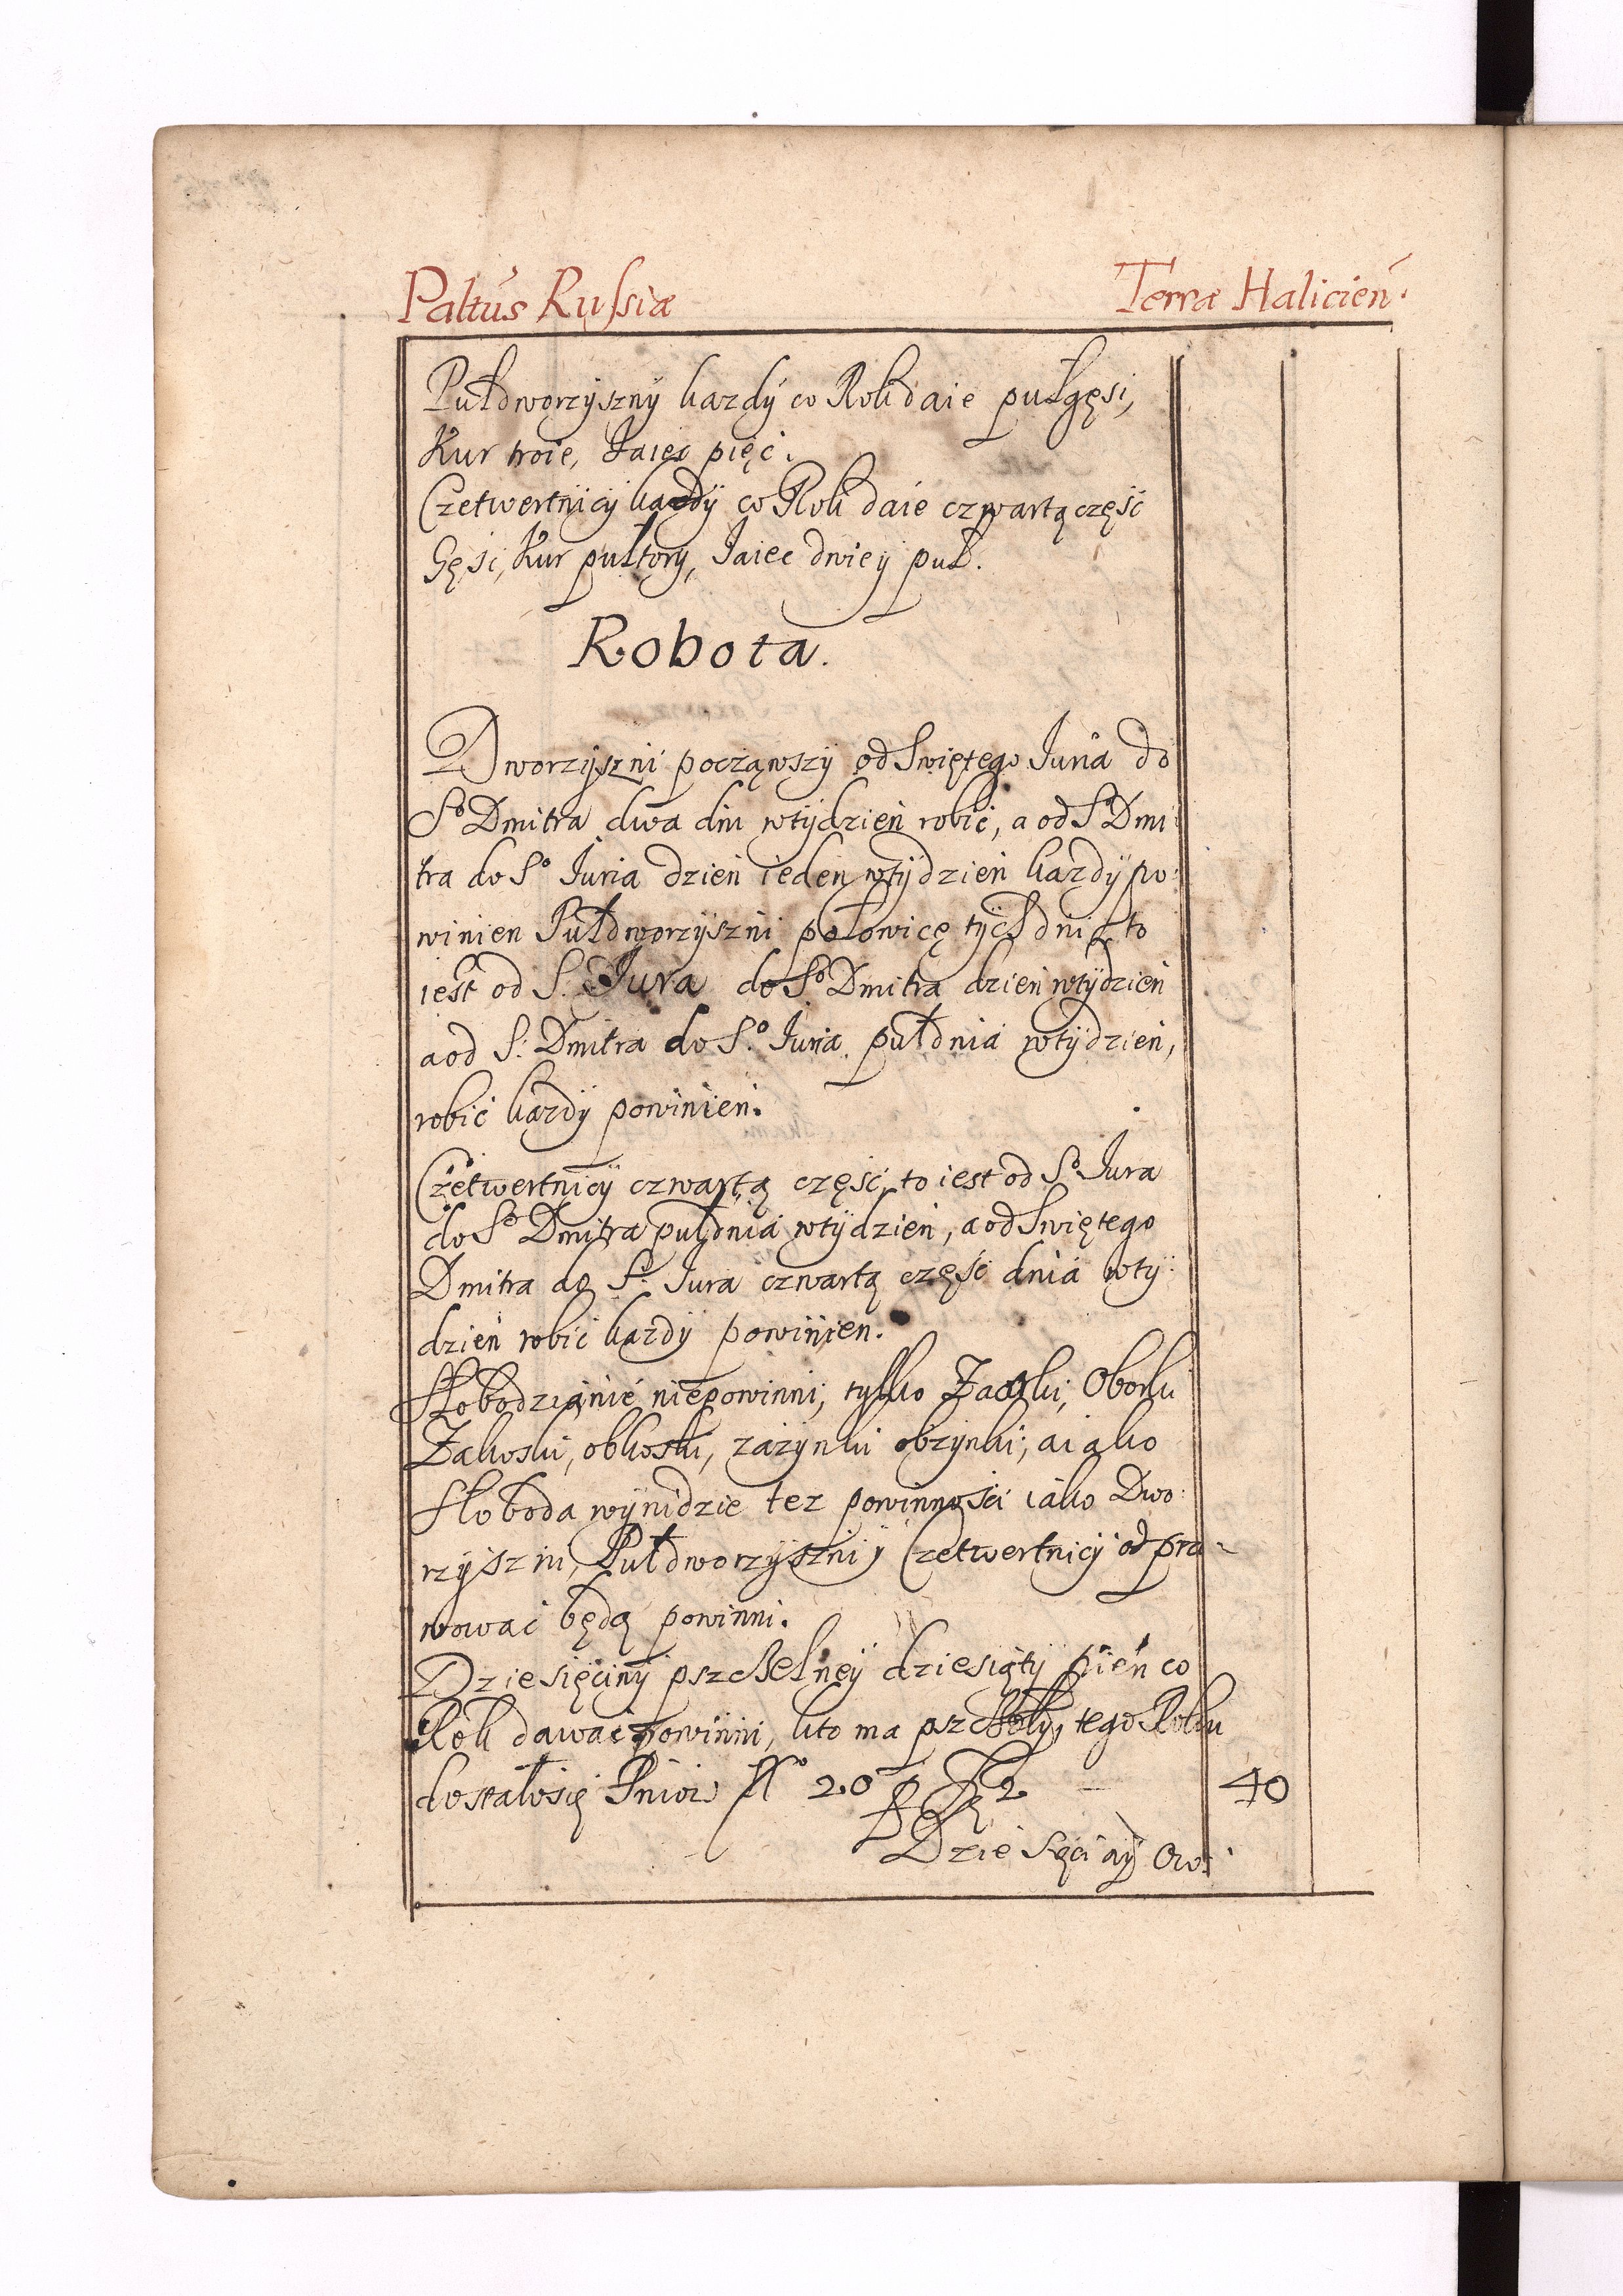 Paltus Russiæ
Terræ Halicień.
Pułdworzyszny kazdy co Rok daie pułgęsi,
Kur troie, Jaiec pięć.
Czetwertnicy kazdy co Rok daie czwartą część
Gęsi, Kur pułtory, Jaiec dwie y puł.
Robota.
Dworzyszni począwszy od Swiętego Juria do
So Dmitra dwa dni wtydzień robić, a od So Dmi
tra do So Juria dzień ieden wtydzień kazdy po:
winien Pułdworzyszni połowicę tych dni to
iest od S. Jura do So Dmitra dzień wtydzień
a od S: Dmitra do S.o Juria pułdnia wtydzień,
robić kazdy powinien.
Czetwertnicy czwartą część, to iest od So Jura
do So Dmitra pułdnia wtydzień, a od Swiętego
Dmitra do S: Jura czwartą część dnia wty:
dzień robić kazdy powinien.
Słobodzianie niepowinni, tylko Zaorki, Oborki
Zakoski, obkoski, zazynki obzynki; a iako
słoboda wynidzie tez powinności iako Dwo:
rzyszni, Pułdworzyszni y Czetwertnicy odpra-
wować będą powinni.
Dziesięciny pszchelney dziesiąty pień co
Rok dawać powinni, kto ma pszchoły, tego Roku
dostałosię Pniow No 20 p fl 2 — 40
Dziesięciny Ow: